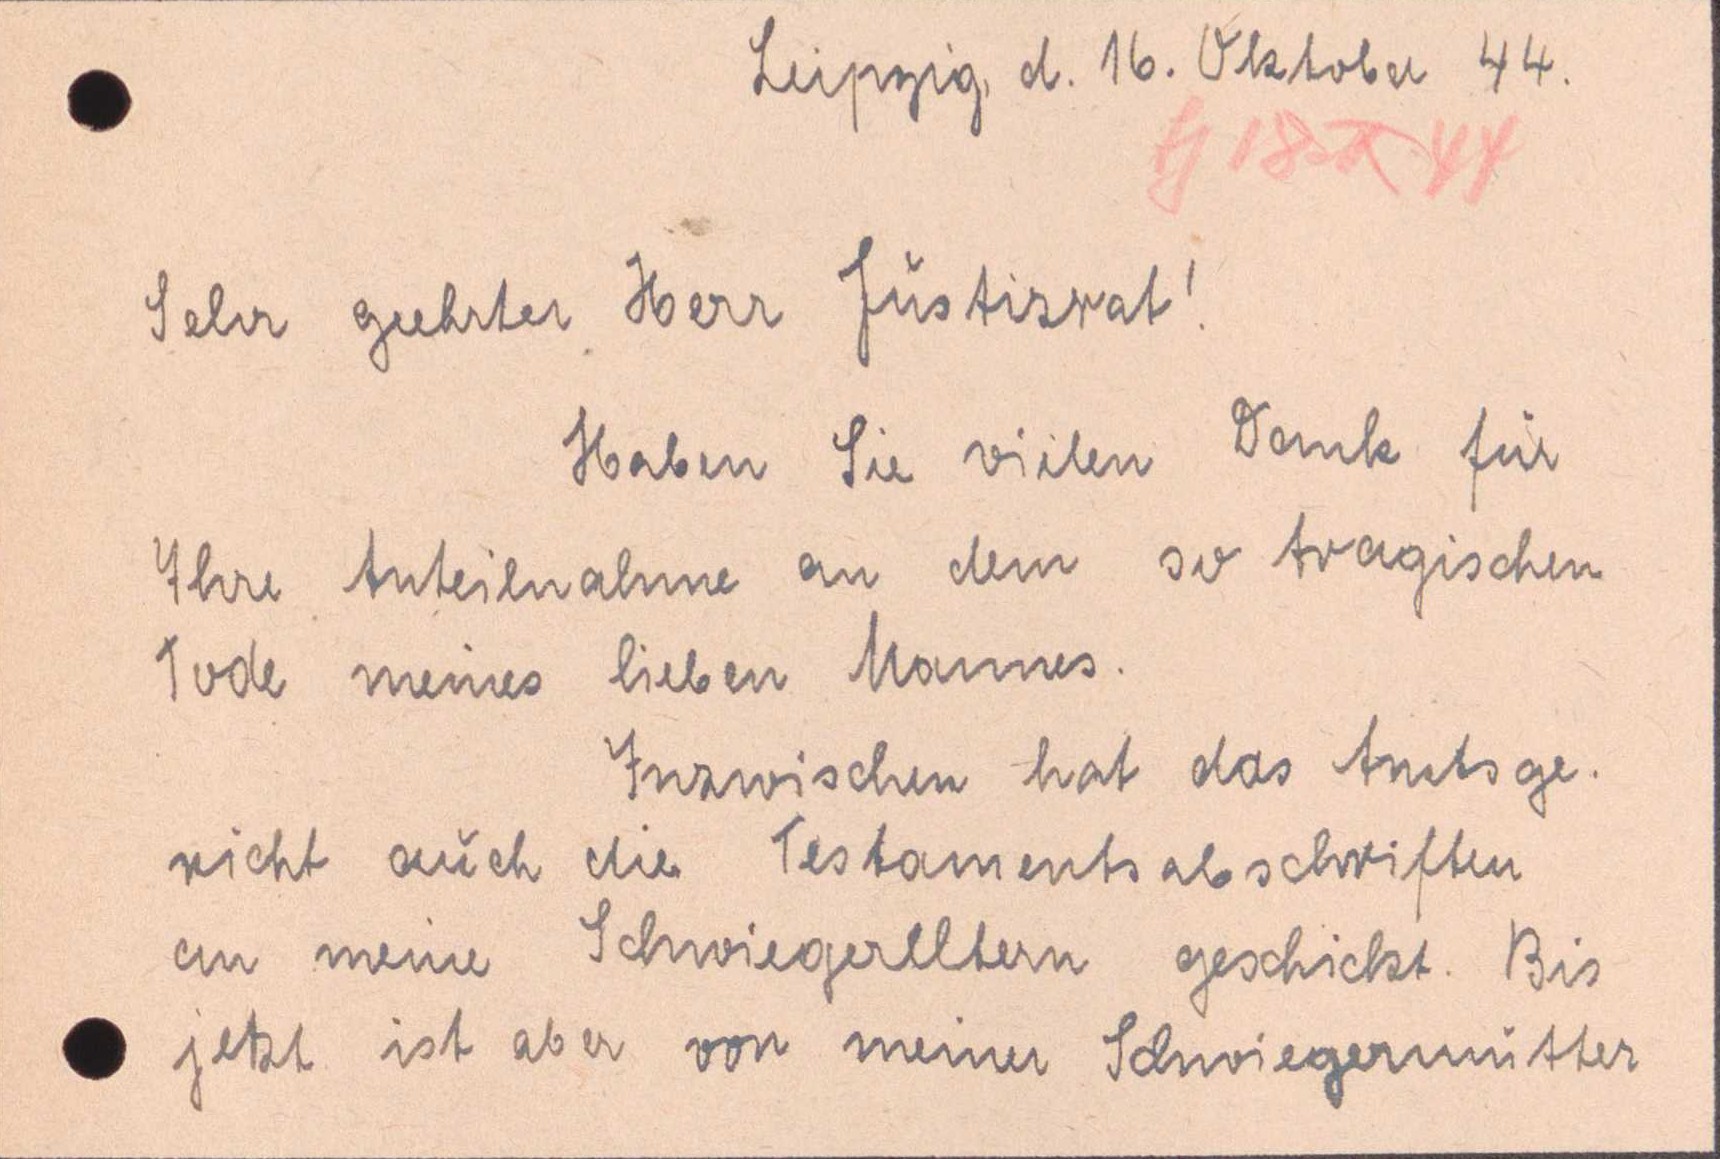 Leipzig, d. 16. Oktober 44.
18. X. 44
Sehr geehrter Herr Justizrat!
Haben Sie vielen Dank für
Ihre Anteilnahme an dem so tragischen
Tode meines lieben Mannes.
Inzwischen hat das Amtsge-
richt auch die Testamentsabschriften
an meine Schwiegereltern geschickt. Bis
jetzt ist aber von meiner Schwiegermutter